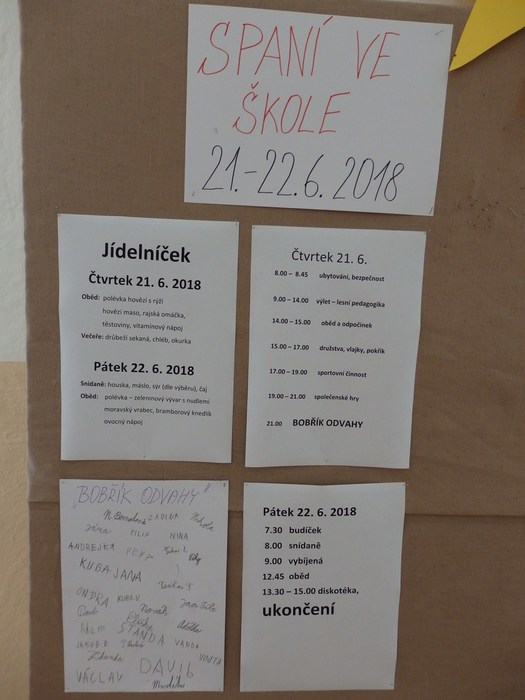 SPANÍ VE
ŠKOLE
21.-22.6.2018
Jídelníček
Čtvrtek 21. 6. 2018
Oběd: polévka hovězí s rýží
hovězí maso, rajská omáčka,
těstoviny, vitamínový nápoj
Večeře: drůbeží sekaná, chléb, okurka
Pátek 22. 6. 2018
Snídaně: houska, máslo, sýr (dle výběru), čaj
Oběd: polévka – zeleninový vývar s nudlemi
moravský vrabec, bramborový knedlík
ovocný nápoj
Čtvrtek 21. 6.
8.00 – 8.45 ubytování, bezpečnost
9.00 – 14.00 výlet – lesní pedagogika
14.00 – 15.00 oběd a odpočinek
15.00 – 17.00 družstva, vlajky, pokřik
17.00 – 19.00 sportovní činnost
19.00 – 21.00 společenské hry
21.00 BOBŘÍK ODVAHY
"BOBŘÍK ODVAHY"
FILIP NINA
ANDREJKA
KUBA JANA
ONDRA
Novák
Eliška
STANDA VANDA
DAVID
VÁCLAV
Pátek 22. 6. 2018
7.30 budíček
8.00 snídaně
9.00 vybíjená
12.45 oběd
13.30 – 15.00 diskotéka,
ukončení